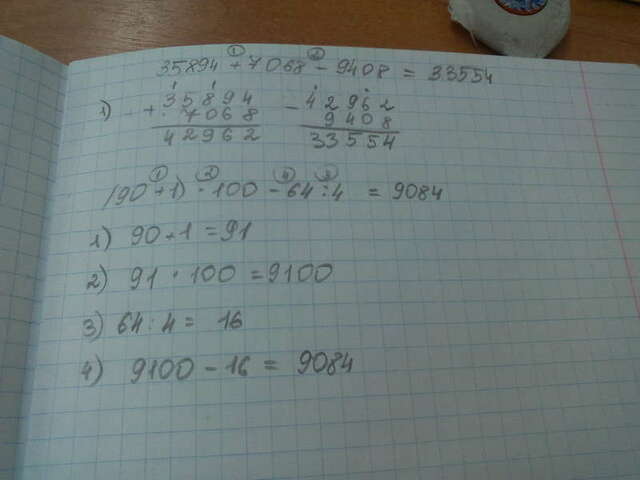 35894 + 7068 - 9408 = 33554
1) + 35894 - 42962
7068 9408
42962 33554
(90 + 1) · 100 - 64 : 4 = 9084
1) 90 + 1 = 91
2) 91 · 100 = 9100
3) 64 : 4 = 16
4) 9100 - 16 = 9084